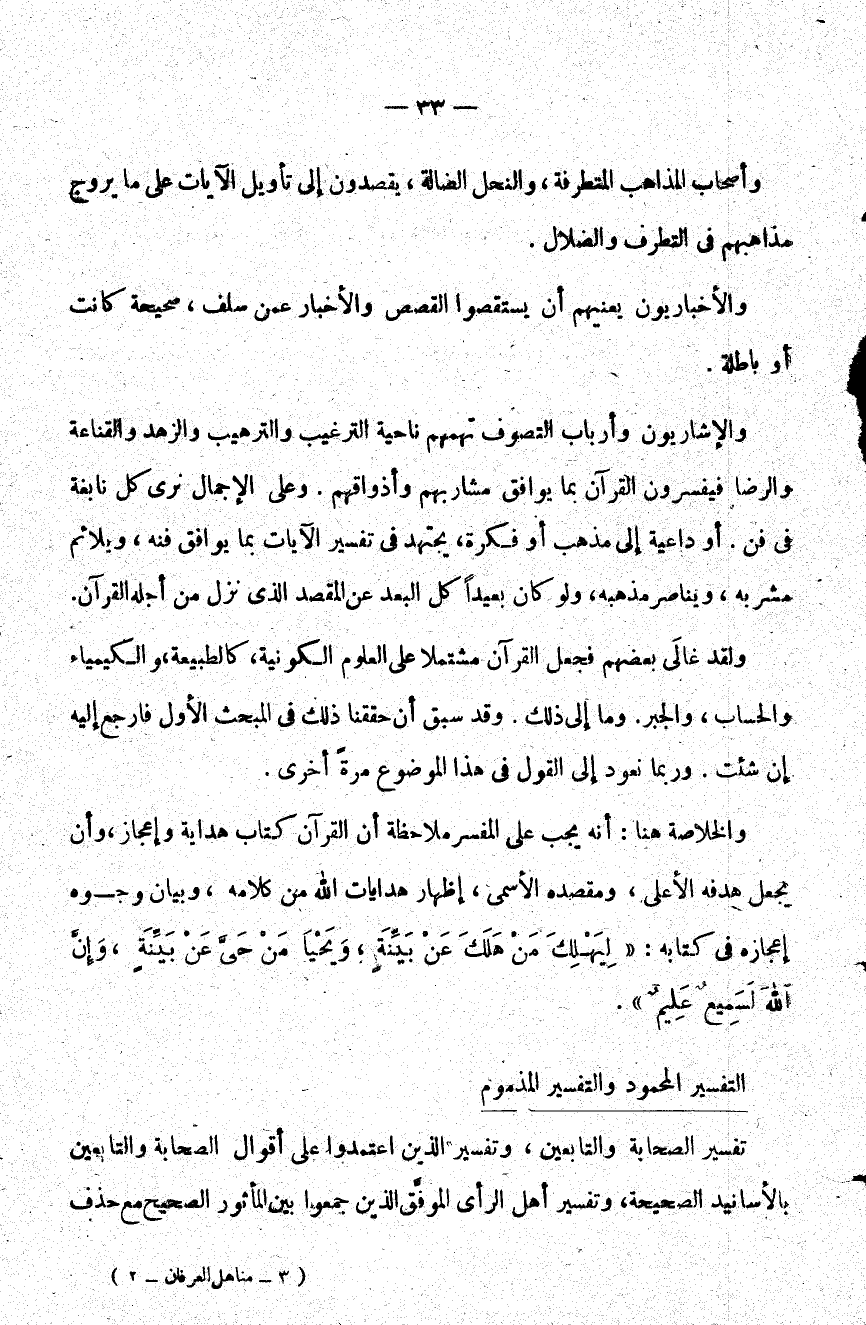 — ٣٣ —
وأصحاب المذاهب المتطرفة ، والنحل الضالة ، يقصدون إلى تأويل الآيات على ما يروج
مذاهبهم فى التطرف والضلال .
والأخباريون يعنيهم أن يستقصوا القصص والأخبار عمن سلف ، صحيحة كانت
أو باطلة .
والإشاريون وأرباب التصوف تهمهم ناحية الترغيب والترهيب والزهد والقناعة
والرضا فيفسرون القرآن بما يوافق مشاربهم وأذواقهم . وعلى الإجمال نرى كل نابغة
فى فن . أو داعية إلى مذهب أو فكرة، يجتهد فى تفسير الآيات بما يوافق فنه ، ويلائم
مشربه ، ويناصر مذهبه، ولو كان بعيداً كل البعد عن المقصد الذى نزل من أجله القرآن.
ولقد غالَى بعضهم فجعل القرآن مشتملا على العلوم الكونية، كالطبيعة، والكيمياء
والحساب ، والجبر. وما إلى ذلك . وقد سبق أن حققنا ذلك فى المبحث الأول فارجع إليه
إن شئت . وربما نعود إلى القول فى هذا الموضوع مرةً أخرى .
والخلاصة هنا : أنه يجب على المفسر ملاحظة أن القرآن كتاب هداية وإعجاز ، وأن
يجعل هدفه الأعلى ، ومقصده الأسمى ، إظهار هدايات الله من كلامه ، وبيان وجـــوه
إعجازه فى كتابه : « لِيَهْلِكَ مَنْ هَلَكَ عَنْ بَيِّنَةٍ ؛ وَيَحْيَا مَنْ حَىَّ عَنْ بَيِّنَةٍ ، وَإِنَّ
ٱللهَ لَسَمِيعٌ عَلِيمٌ » .
التفسير المحمود والتفسير المذموم
تفسير الصحابة والتابعين ، وتفسير الذين اعتمدوا على أقوال الصحابة والتابعين
بالأسانيد الصحيحة، وتفسير أهل الرأى الموفَّق الذين جمعوا بين المأثور الصحيح مع حذف
( ٣ ــ مناهل العرفان ــ ٢ )